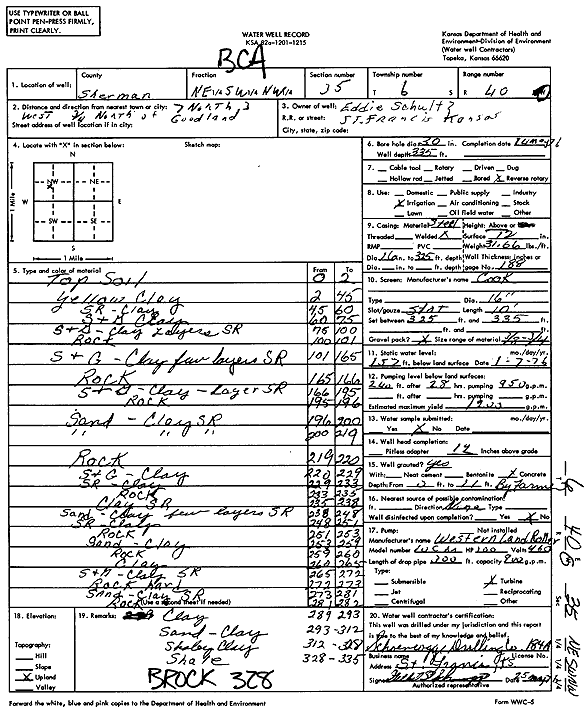 USE TYPEWRITER OR BALL
POINT PEN-PRESS FIRMLY,
PRINT CLEARLY.
WATER WELL RECORD
KSA 82a-1201-1215
Kansas Department of Health and
Environment-Division of Environment
(Water well Contractors)
Topeka, Kansas 66620
BCA
1. Location of well:
County
Sherman
Fraction
NE¼SW¼NW¼
Section number
35
Township number
T 6 S
Range number
R 40
2. Distance and direction from nearest town or city: 7 North, 3
West ¾ North of
Street address of well location if in city: Goodland
3. Owner of well: Eddie Schultz
R.R. or street: St. Francis Kansas
City, state, zip code:
4. Locate with "X" in section below:
Sketch map:
N
NW
NE
W
E
SW
SE
S
1 Mile
1 Mile
6. Bore hole dia. 30 in. Completion date
Well depth 335 ft.
7. Cable tool Rotary Driven Dug
Hollow rod Jetted Bored X Reverse rotary
8. Use: Domestic Public supply Industry
X Irrigation Air conditioning Stock
Lawn Oil field water Other
9. Casing: Material Steel Height: Above or
Threaded Welded X Surface 12 in.
RMP PVC Weight 31.66 lbs./ft.
Dia. 16 in. to 325 ft. depth Wall Thickness: inches or
Dia. in. to ft. depth gage No. 188
5. Type and color of material
From
To
Top Soil 0 2
Yellow Clay 2 45
SR - Clay 45 60
S+G Clay 60 75
S+G - Clay Layers SR 75 100
Rock 100 101
S+G - Clay few layers SR 101 165
Rock 165 166
S+G - Clay - Layer SR 166 195
Rock 195 196
Sand - Clay SR 196 200
" " " 200 219
Rock 219 220
S+G - Clay 220 229
SR - Clay 229 233
Rock 233 235
Clay SR 235 238
Sand - Clay few layers SR 238 248
SR - Clay 248 251
Rock 251 253
Sand - Clay 253 259
Rock 259 260
Clay 260 265
S+G - Clay SR 265 272
Rock Hard 272 273
Sand - Clay SR 273 281
Rock 281 282
(Use a second sheet if needed)
10. Screen: Manufacturer's name Cook
Type Dia. 16"
Slot/gauze Slot Length 10'
Set between 325 ft. and 335 ft.
ft. and ft.
Gravel pack? X Size range of material 3/8-3/4
11. Static water level: mo./day/yr.
152 ft. below land surface Date 1-7-76
12. Pumping level below land surfaces:
240 ft. after 28 hrs. pumping 950 g.p.m.
ft. after hrs. pumping g.p.m.
Estimated maximum yield g.p.m.
13. Water sample submitted: mo./day/yr.
Yes X No Date
14. Well head completion:
Pitless adapter 12 Inches above grade
15. Well grouted? yes
With: Neat cement Bentonite X Concrete
Depth: From 0 ft. to 11 ft. By Farmer
16. Nearest source of possible contamination:
ft. Direction None Type
Well disinfected upon completion? Yes X No
17. Pump: Not installed
Manufacturer's name Western Land Roller
Model number HP 100 Volts 460
Length of drop pipe 200 ft. capacity 800 g.p.m.
Type:
Submersible X Turbine
Jet Reciprocating
Centrifugal Other
18. Elevation:
Topography:
Hill
Slope
X Upland
Valley
19. Remarks: Clay 289 293
Sand - Clay 293-312
Shaley Clay 312-328
Shale 328-335
BROCK 328
20. Water well contractor's certification:
This well was drilled under my jurisdiction and this report
is true to the best of my knowledge and belief.
Drilling Co. 184A
Business name License No.
Address St. Francis Ks
Signed Date 25
Authorized representative
6
40
35
Sec
NE SW NW
¼ ¼ ¼
Forward the white, blue and pink copies to the Department of Health and Environment
Form WWC-5